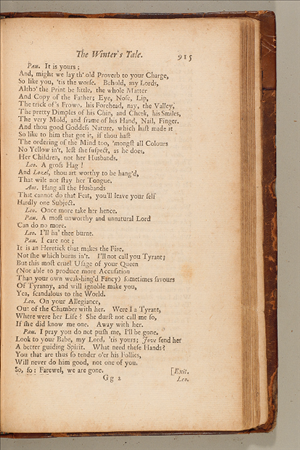 The Winter's Tale. 915
Pau. It is yours;
And, might we lay th' old Proverb to your Charge,
So like you, 'tis the worse. Behold, my Lords,
Altho' the Print be little, the whole Matter
And Copy of the Father; Eye, Nose, Lip,
The trick of's Frown, his Forehead, nay, the Valley,
The pretty Dimples of his Chin, and Cheek, his Smiles,
The very Mold, and frame of his Hand, Nail, Finger.
And thou good Goddess Nature, which hast made it
So like to him that got it, if thou hast
The ordering of the Mind too, 'mongst all Colours
No Yellow in't, lest she suspect, as he does,
Her Children, not her Husbands.
Leo. A gross Hag!
And Lozel, thou art worthy to be hang'd,
That wilt not stay her Tongue.
Ant. Hang all the Husbands
That cannot do that Feat, you'll leave your self
Hardly one Subject.
Leo. Once more take her hence.
Pau. A most unworthy and unnatural Lord
Can do no more.
Leo. I'll ha' thee burnt.
Pau. I care not;
It is an Heretick that makes the Fire,
Not she which burns in't. I'll not call you Tyrant;
But this most cruel Usage of your Queen
(Not able to produce more Accusation
Than your own weak-hing'd Fancy) something savours
Of Tyranny, and will ignoble make you,
Yea, scandalous to the World.
Leo. On your Allegiance,
Out of the Chamber with her. Were I a Tyrant,
Where were her Life? She durst not call me so,
If she did know me one. Away with her.
Pau. I pray you do not push me, I'll be gone.
Look to your Babe, my Lord, 'tis yours; Jove send her
A better guiding Spirit. What need these Hands?
You that are thus so tender o'er his Follies,
Will never do him good, not one of you.
So, so: Farewel, we are gone. [Exit.
Gg 2 Leo.